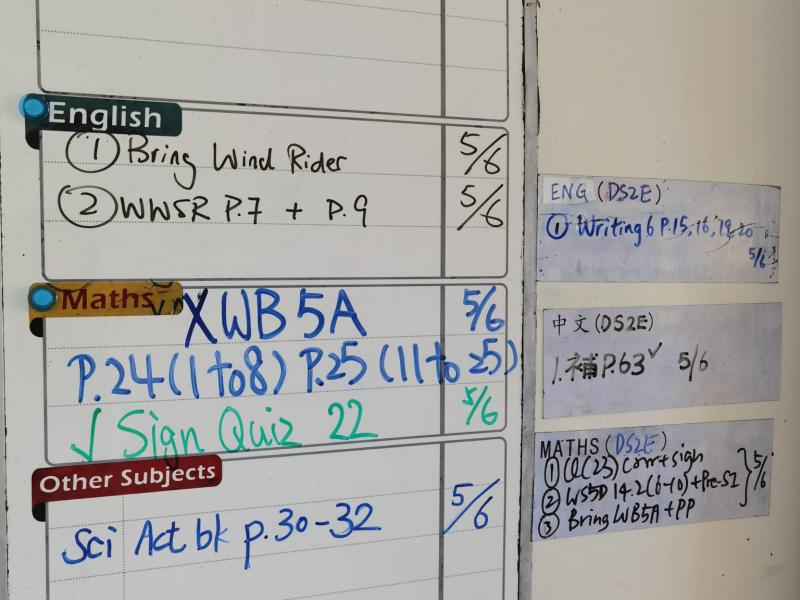 English
① Bring Wind Rider 5/6
② WWSR P.7 + P.9 5/6
Maths
X WB 5A 5/6
P.24 (1 to 8) P.25 (11 to 25)
√ Sign Quiz 22 5/6
Other Subjects
Sci Act bk p.30-32 5/6
ENG (DS2E)
① Writing 6 P.15, 16, 19, 20
5/6
中文 (DS2E)
1. 補 P.63 ✓ 5/6
MATHS (DS2E)
① Q(23) Corr + sign
② WS5D 14.2 (6-10) + Pre-S1
③ Bring WB5A + PP
5/6